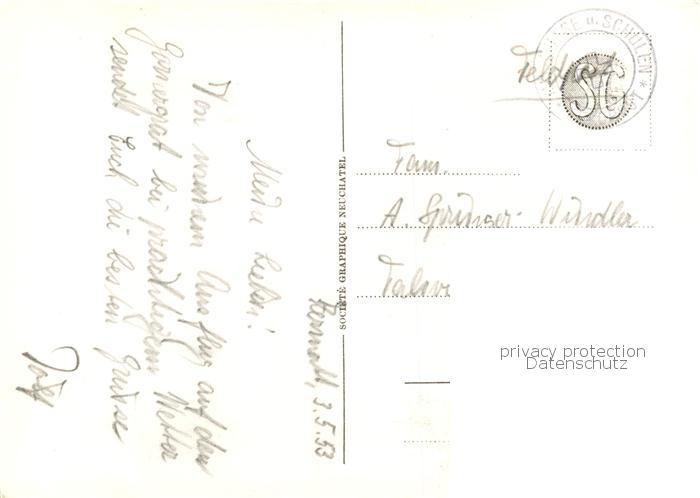 Zermatt, 3.5.53
Meine Lieben!
Von meinem Ausflug auf den
Gornergrat bei prächtigem Wetter
sendet Euch die besten Grüsse
SOCIÉTÉ GRAPHIQUE NEUCHATEL
u. SCHULEN *
SG
Feldpost
Fam.
A. Springer-Windler
privacy protection
Datenschutz